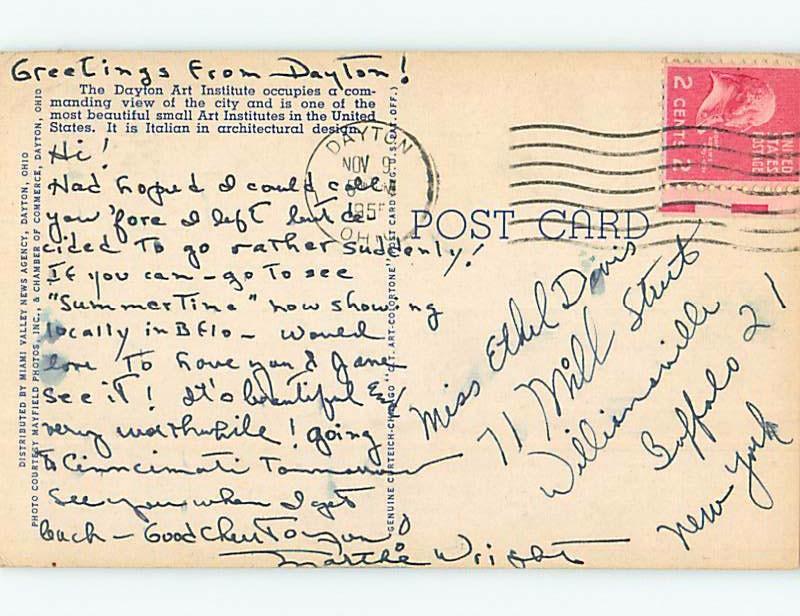 Greetings From Dayton!
The Dayton Art Institute occupies a com-
manding view of the city and is one of the
most beautiful small Art Institutes in the United
States. It is Italian in architectural design.
Hi!
Had hoped I could call
you 'fore I left but de-
cided to go rather suddenly!
If you can - go to see
"Summertime" now showing
locally in Bflo - would
love to have you & Jane
see it! It's beautiful &
very worthwhile! going
to Cinncimati Tommorrow
See you when I get
back - Good Cheer To you!
Marthe Wright
DISTRIBUTED BY MIAMI VALLEY NEWS AGENCY, DAYTON, OHIO
PHOTO COURTESY MAYFIELD PHOTOS, INC., & CHAMBER OF COMMERCE, DAYTON, OHIO
GENUINE CURTEICH-CHICAGO "C.T. ART-COLORTONE" POST CARD (REG. U.S. PAT. OFF.)
DAYTON
NOV 9
195
OHIO
POST CARD
UNITED
STATES
POSTAGE
2 CENTS 2
Miss Ethel Davis
71 Mill Street
Williamsville
Buffalo 21
New York